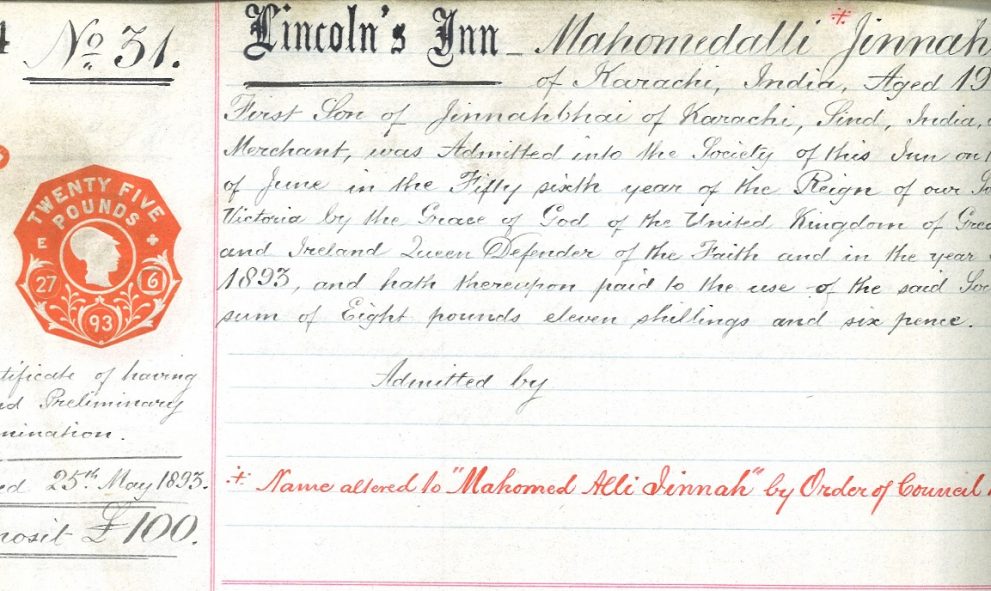 4 No. 31.
TWENTY FIVE
POUNDS
E
27 6
93
tificate of having
Preliminary
mination.
ed 25th May 1893.
posit £100.
Lincoln's Inn - Mahomedalli Jinnah
of Karachi, India, Aged 19
First Son of Jinnahbhai of Karachi, Sind, India,
Merchant, was Admitted into the Society of this Inn on
of June in the Fifty sixth year of the Reign of our So
Victoria by the Grace of God of the United Kingdom of Grea
and Ireland Queen Defender of the Faith and in the year
1893, and hath thereupon paid to the use of the said Soc
sum of Eight pounds eleven shillings and six pence.
Admitted by
Name altered to "Mahomed Alli Jinnah" by Order of Council